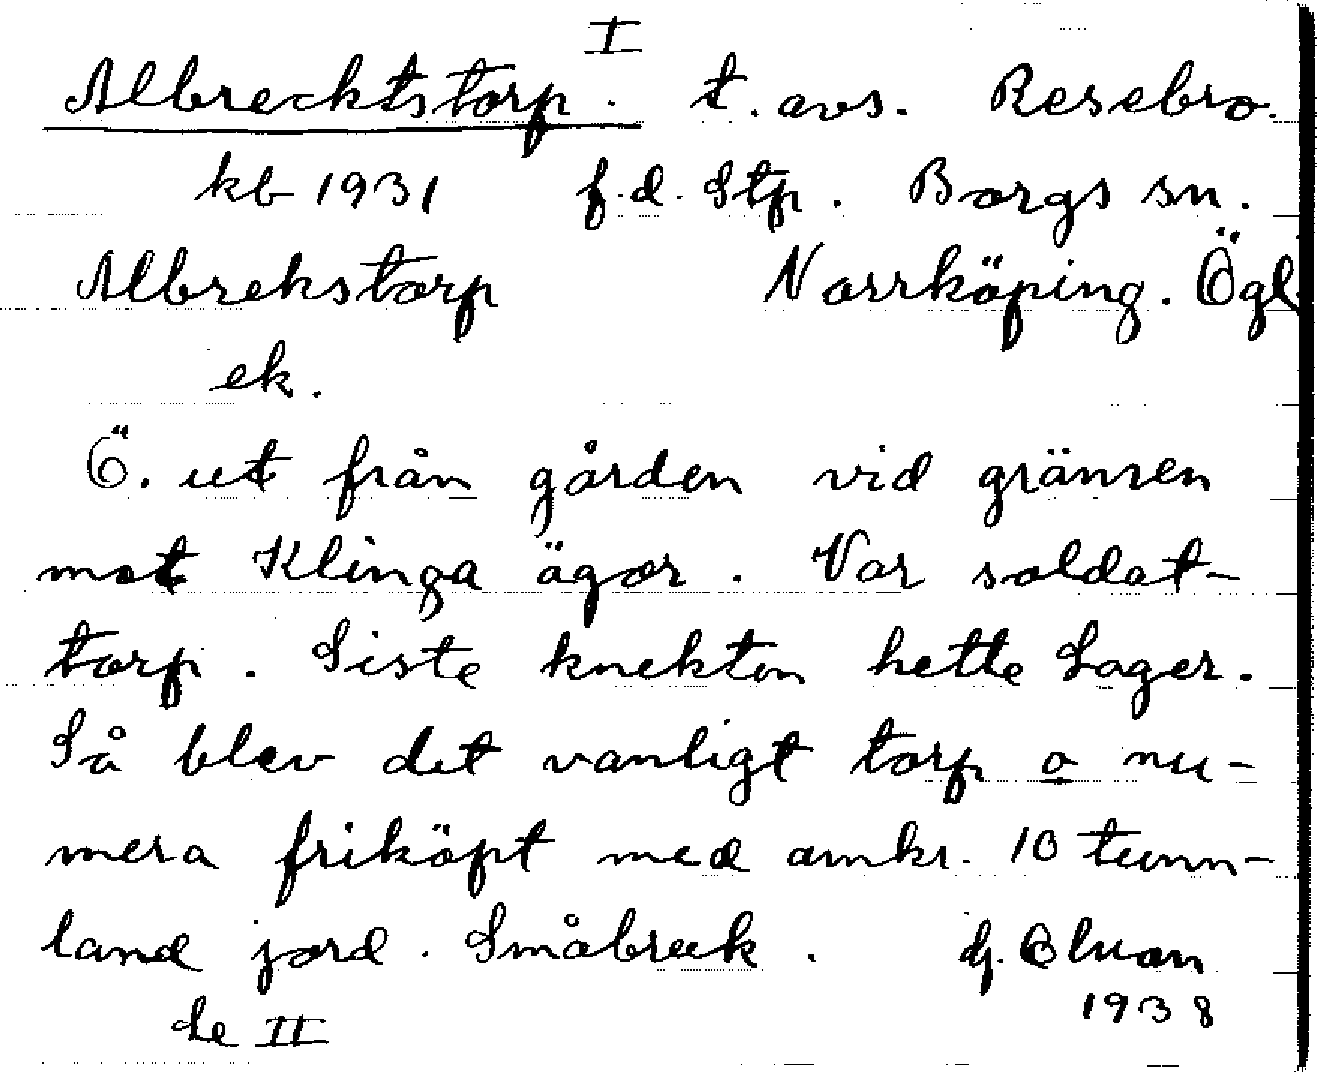 I
Albrecktstorp. t. avs. Resebro.
kb 1931 f.d. Stp. Borgs sn.
Albrekstorp Norrköping. Ögl
ek.
Ö. ut från gården vid gränsen
mot Klinga ägor. Var soldat-
torp. Siste knekten hette Lager.
Så blev det vanligt torp o nu-
mera friköpt med omkr. 10 tunn-
land jord. Småbruk.
Se II 1938